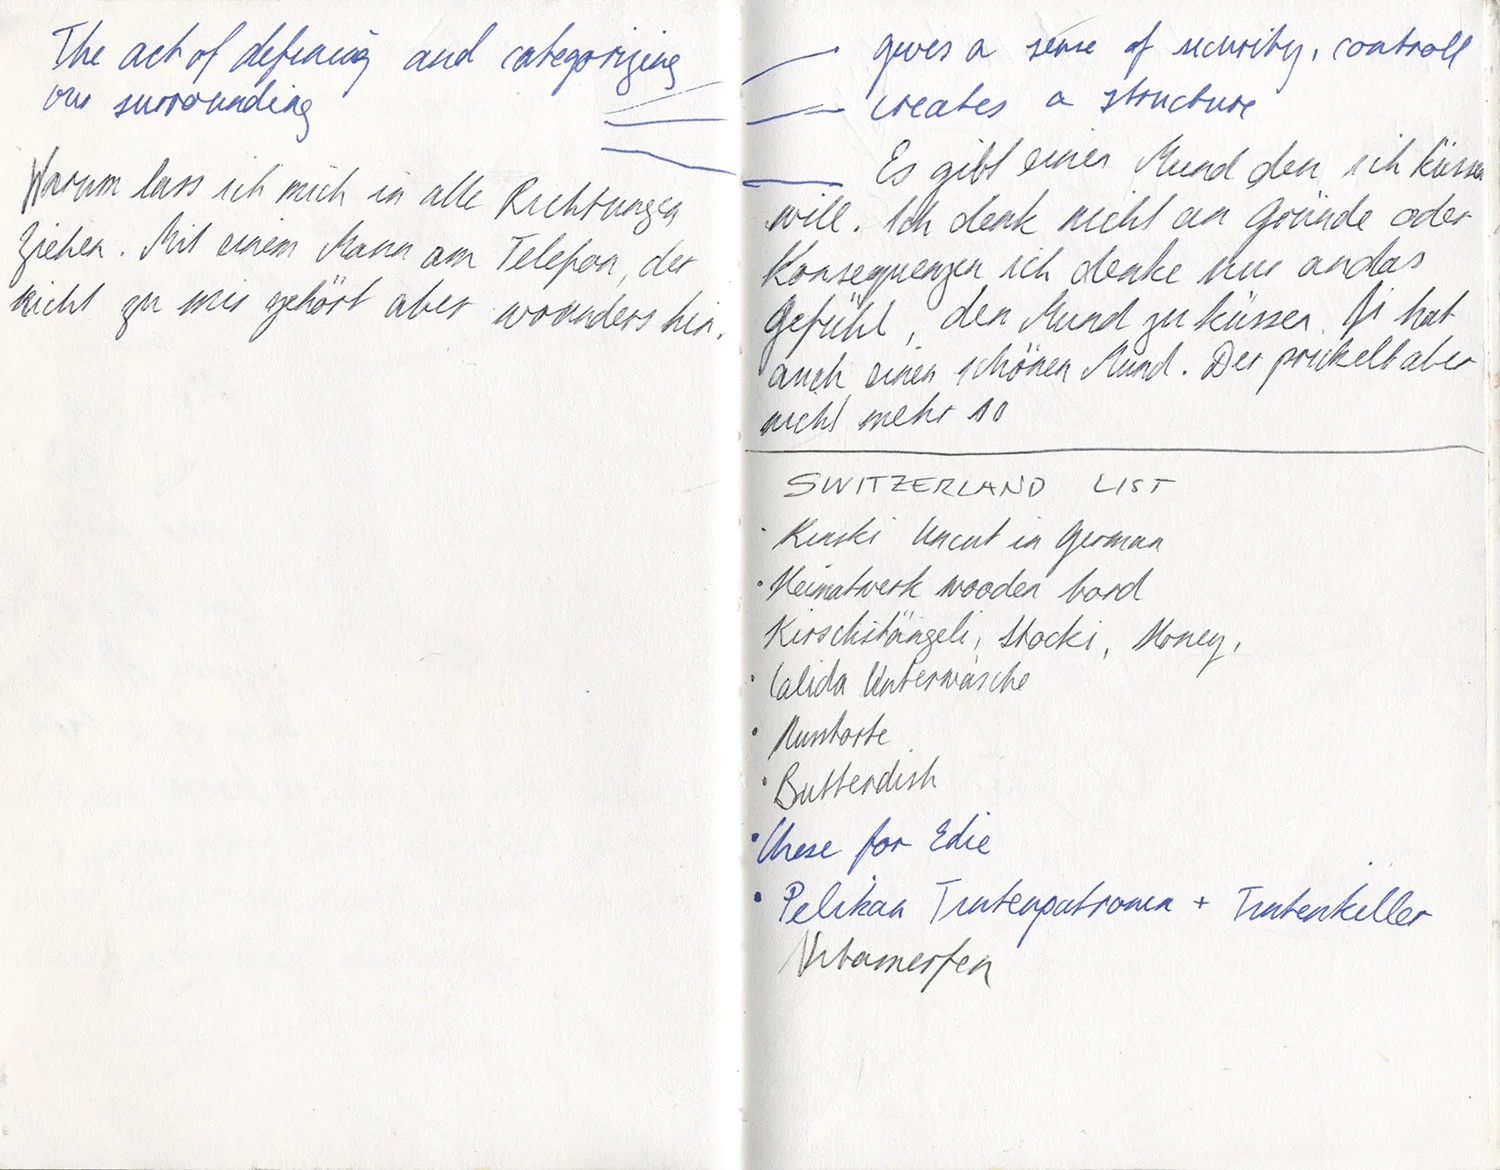 The act of defining and categorizing
our surrounding
Warum lass ich mich in alle Richtungen
ziehen. Mit einem Mann am Telefon, der
nicht zu mir gehört aber woanders hin.
gives a sense of security, controll
creates a structure
Es gibt einen Mund den ich küssen
will. Ich denk nicht an Gründe oder
Konsequenzen ich denke nur an das
Gefühl, den Mund zu küssen. hat
auch einen schönen Mund. Der prickelt aber
nicht mehr so
SWITZERLAND LIST
· Kinski Uncut in German
· Heimatwerk wooden bord
Kirschstängeli, Stocki, Honey,
· Calida Unterwäsche
· Nusstorte
· Butterdish
· Chese for Edie
· Pelikan Tintenpatronen + Tintenkiller